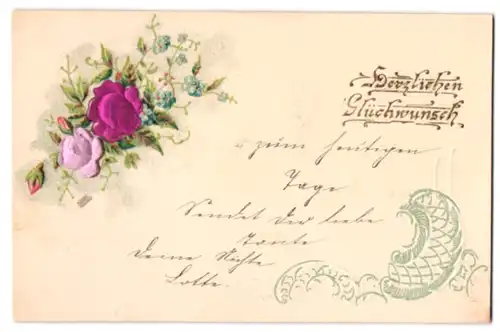 Herzlichen
Glückwunsch
zum heutigen
Tage
Sendet der liebe
Tante
Deine Nichte
Lotte.